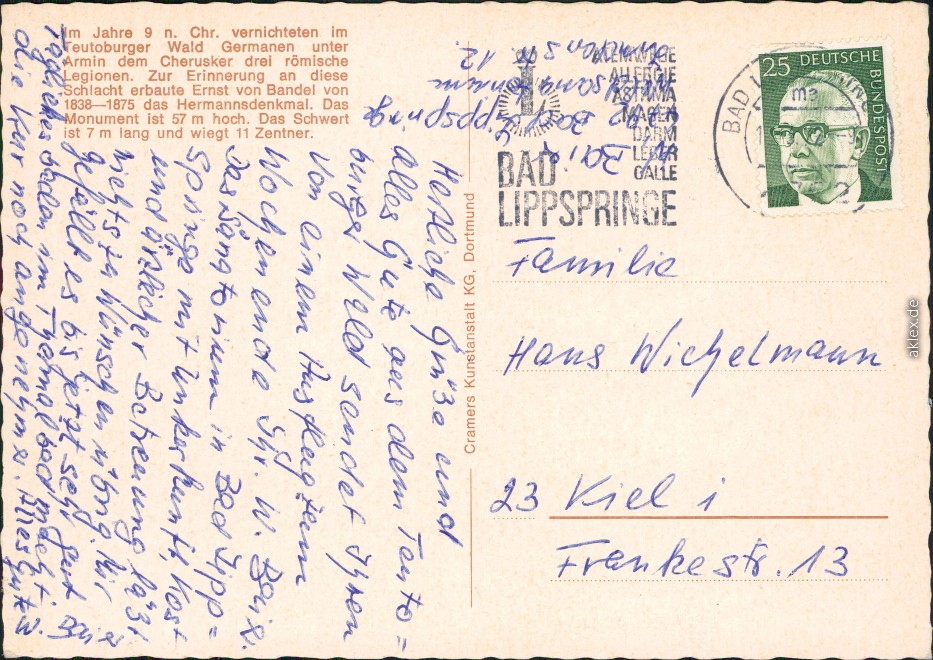 Im Jahre 9 n. Chr. vernichteten im
Teutoburger Wald Germanen unter
Armin dem Cherusker drei römische
Legionen. Zur Erinnerung an diese
Schlacht erbaute Ernst von Bandel von
1838—1875 das Hermannsdenkmal. Das
Monument ist 57 m hoch. Das Schwert
ist 7 m lang und wiegt 11 Zentner.
Herzliche Grüße und
alles Gute aus dem Teuto=
burger Wald sendet Ihnen
von einem Ausflug zum
Wochenende Ihr. W.
Das Sanatorium in Bad Lipp=
springe mit Unterkunft, Kost
und ärztlicher Betreuung läßt
nichts zu Wünschen übrig. Mir
gefällt es bis jetzt sehr gut
tägliches baden im Thermalbad macht
die Kur noch angenehmer. Alles Gute
Cramers Kunstanstalt KG, Dortmund
Bad Lippspringe
12.
ATEMWEGE
ALLERGIE
ASTHMA
MAGEN
DARM
LEBER
GALLE
BAD
LIPPSPRINGE
BAD
ma
2
25 DEUTSCHE
BUNDESPOST
Familie
Hans Wichelmann
23 Kiel 1
Frankestr. 13
aklex.de